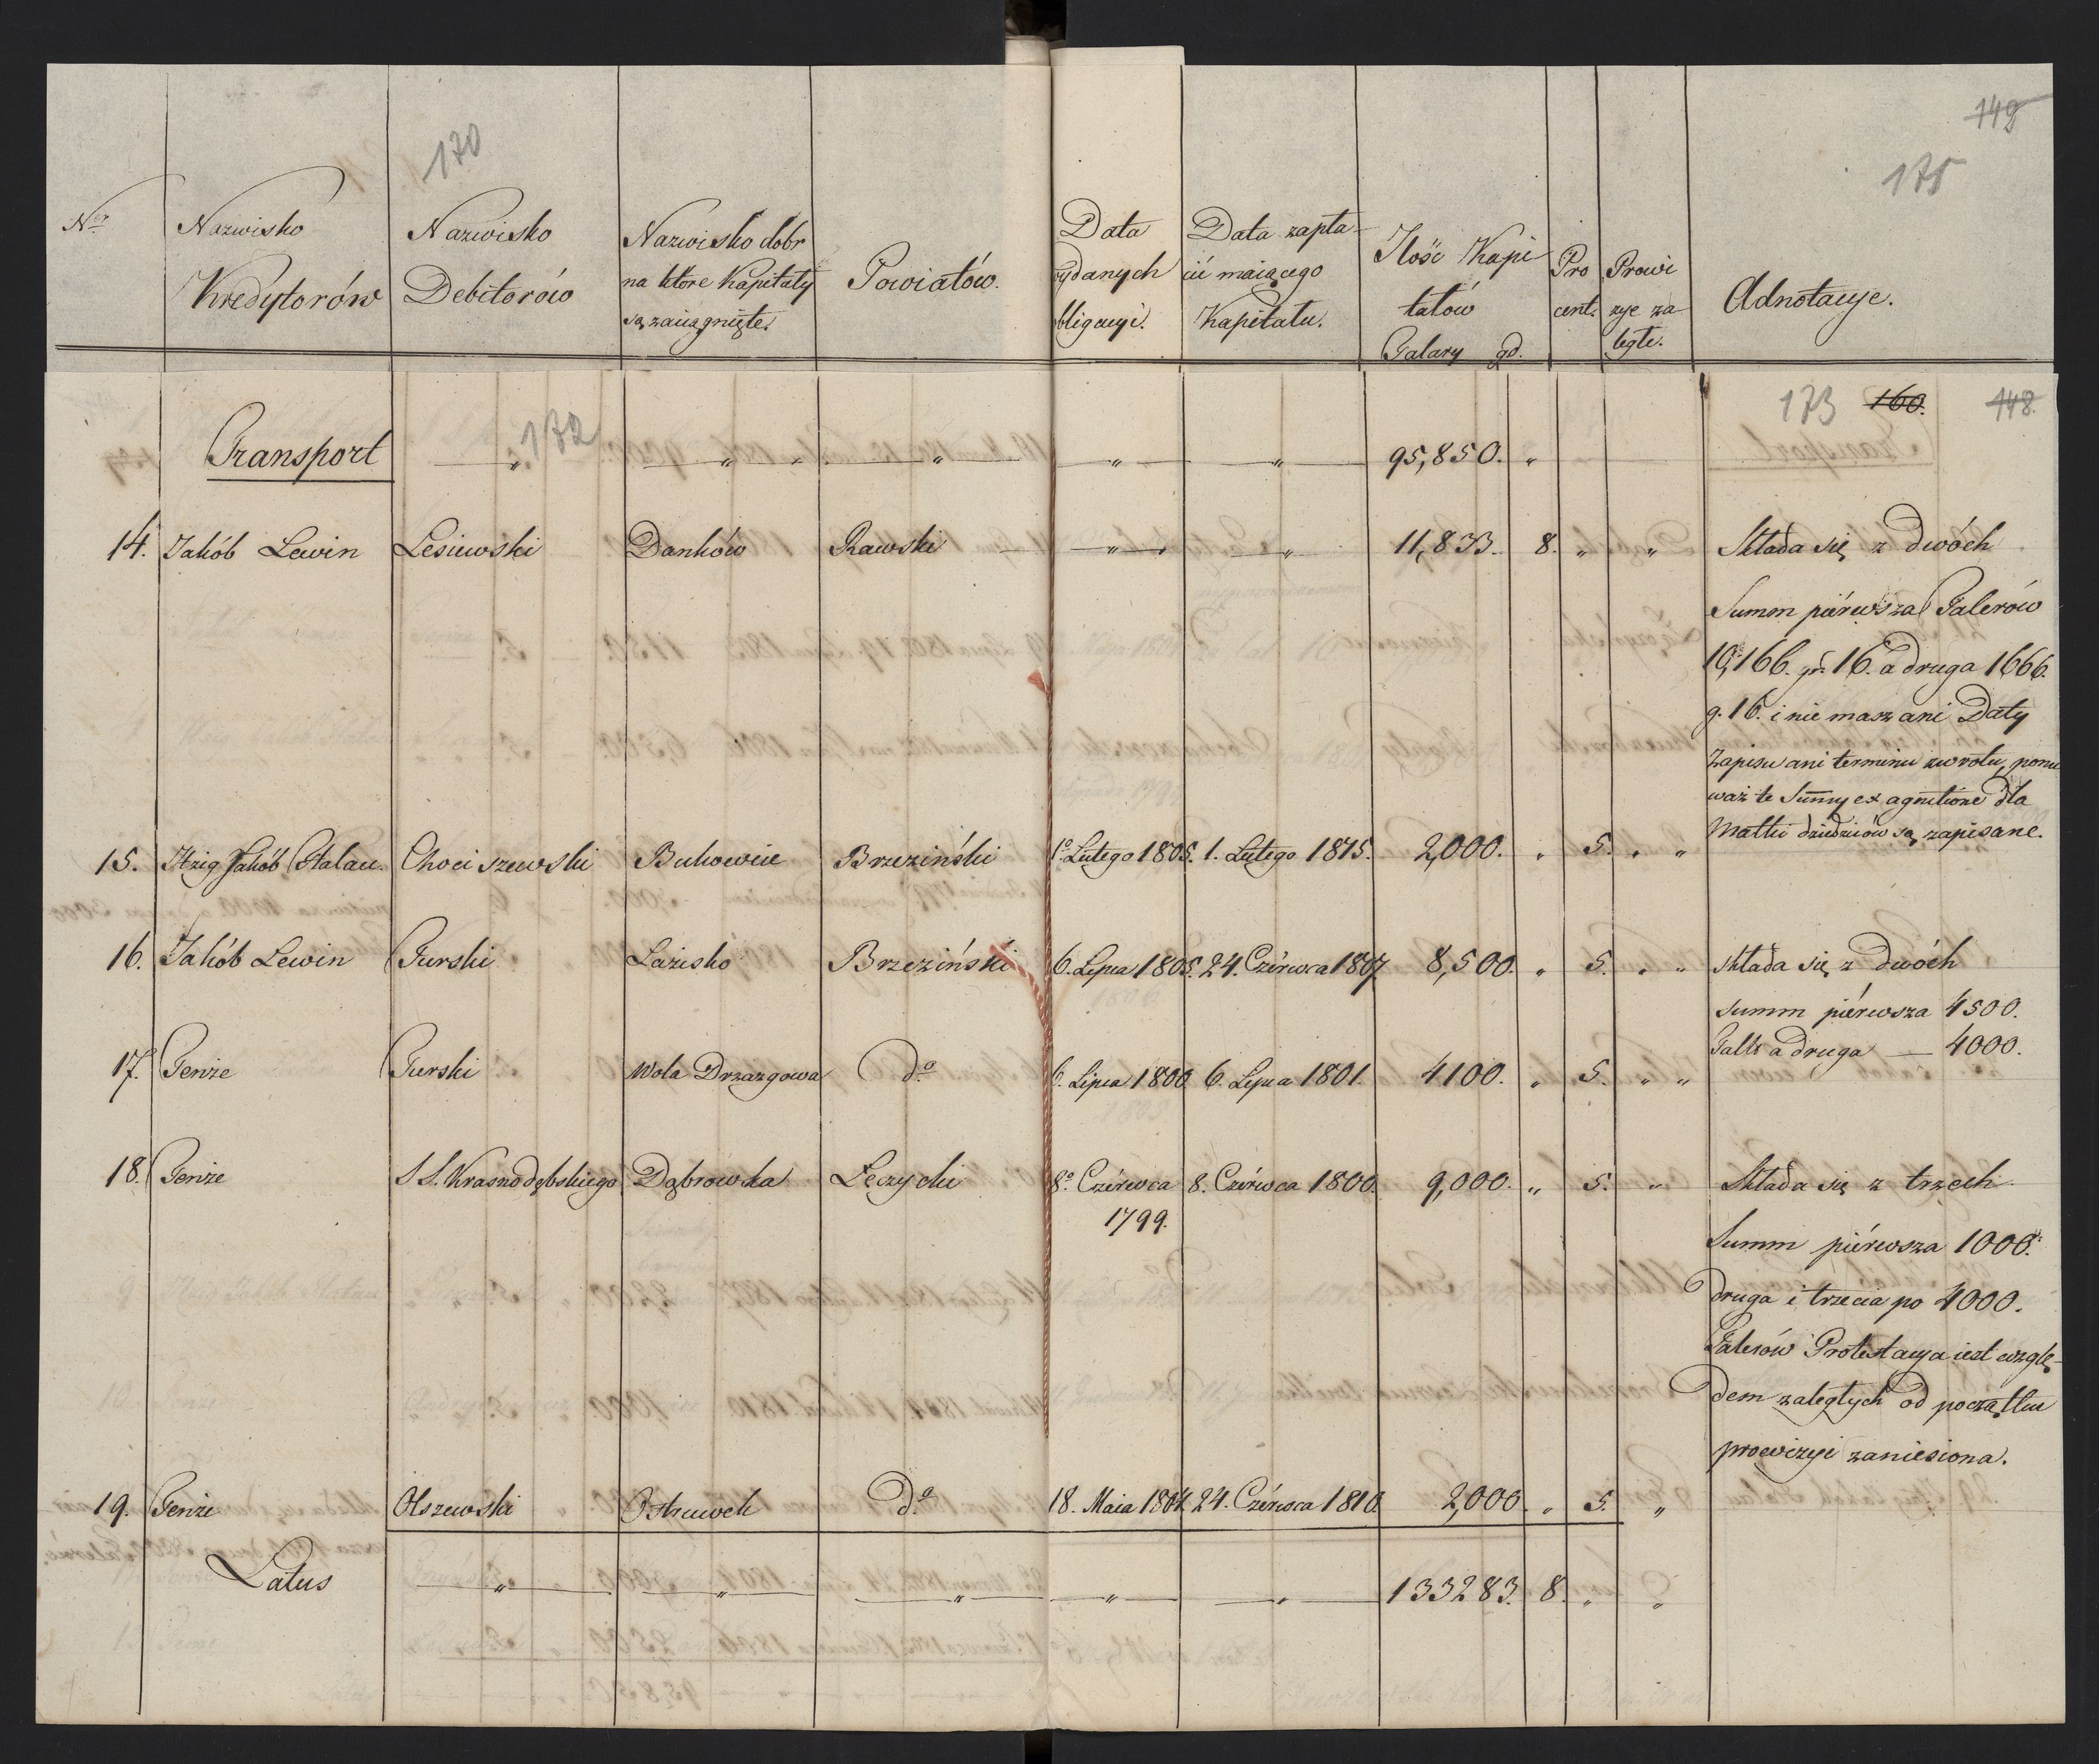 149
170
175
No Nazwisko Kredytorów
Nazwisko Debitorów
Nazwisko dobr na ktore Kapitały są zaciągnięte.
Powiatów.
Data ydanych bligacyi.
Data zapłacić maiącego Kapitału.
Ilość Kapitałów Talary gd.
Procent.
Prowizye zaległe.
Adnotacye.
172
173 160. 148.
Transport — „ — „ — „ — „ — „ — 95,850. „
14. Jakób Lewin Lesiewski Danków Rawski — „ — „ — 11,833. 8. „ „ Składa się z dwóch
Summ piérwsza Talerów
10,166. gr. 16. a druga 1666.
g. 16. i nie masz ani Daty
Zapisu ani terminu zwrotu, ponie
waż te Summy ex agnitione dla
Matki dziedziców są zapisane.
15. Itzig Jakób Chociszewski Bukowiec Brzeziński 1o Lutego 1805. 1. Lutego 1815. 2,000. „ 5. „ „
16. Jakób Lewin Gurski Łazisko Brzeziński 6. Lipca 1805. 24. Czérwca 1807. 8,500. „ 5. „ „ składa się z dwóch
summ piérwsza 4500.
Talr a druga — 4000.
17. Tenże Gurski Wola Drzazgowa do 6. Lipca 1800. 6. Lipca 1801. 4100. „ 5. „ „
18. Tenże S S. Krasnodębskiego Dąbrowka Łęczycki 8o Czérwca 1799. 8. Czérwca 1800. 9,000. „ 5. „ Składa się z trzech
Summ piérwsza 1000.
druga i trzecia po 4000.
Talerów Protestacya iest wzglę-
dem zaległych od początku
prowizyi zaniesiona.
19. Tenże Olszewski Ostruwek do 18. Maia 1804. 24. Czérwca 1810. 2,000. „ 5. „
Latus — „ — „ — „ — „ — „ — 133283. 8. „ „